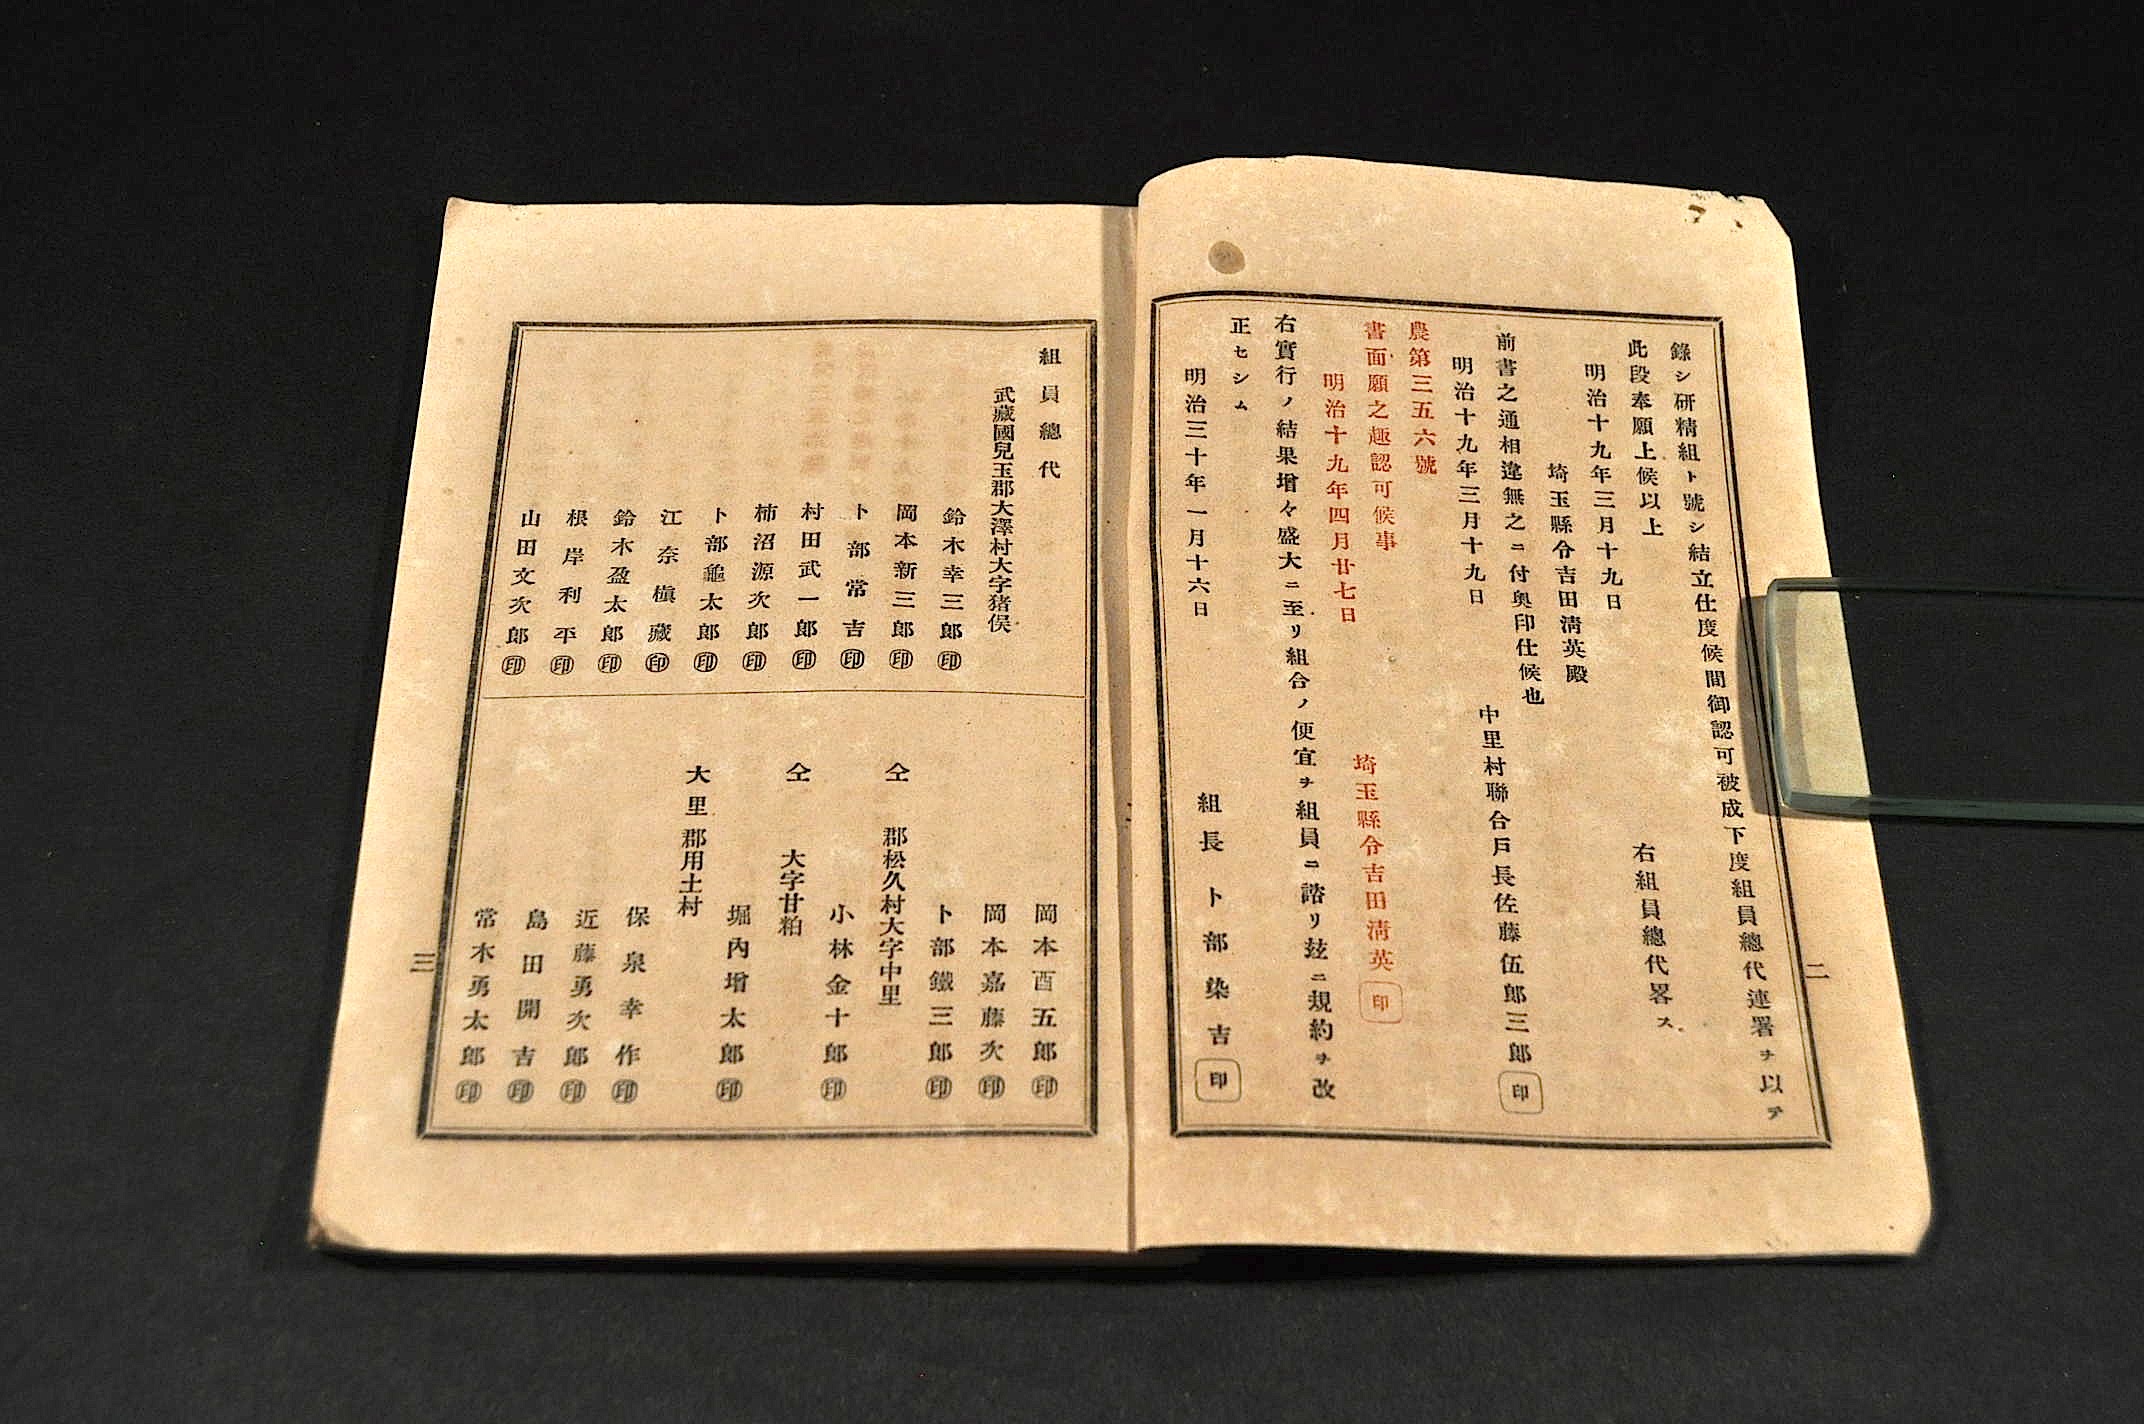 錄シ研精組ト號シ結立仕度候間御認可被成下度組員總代連署ヲ以テ
此段奉願上候以上
右組員總代畧ス
明治十九年三月十九日
埼玉縣令吉田淸英殿
前書之通相違無之ニ付奥印仕候也
中里村聯合戸長佐藤伍郎三郎 印
明治十九年三月十九日
農第三五六號
書面願之趣認可候事
明治十九年四月廿七日
埼玉縣令吉田淸英 印
右實行ノ結果增々盛大ニ至リ組合ノ便宜ヲ組員ニ諮リ玆ニ規約ヲ改
正セシム
明治三十年一月十六日
組長 卜部染吉 印
二
組員總代
武藏國兒玉郡大澤村大字猪俣
鈴木幸三郎 印
岡本新三郎 印
卜部常吉 印
村田武一郎 印
柿沼源次郎 印
卜部龜太郎 印
江奈槇藏 印
鈴木盈太郎 印
根岸利平 印
山田文次郎 印
岡本酉五郎 印
岡本嘉藤次 印
卜部鐵三郎 印
仝 郡松久村大字中里
小林金十郎 印
仝 大字甘粕
堀內增太郎 印
大里郡用土村
保泉幸作 印
近藤勇次郎 印
島田開吉 印
常木勇太郎 印
三